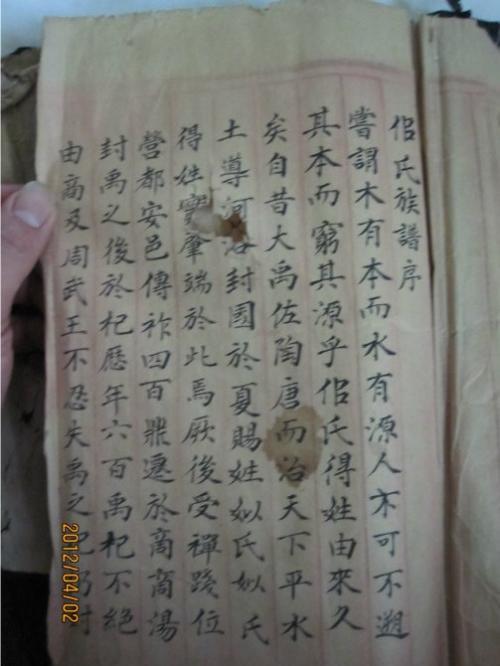 佀氏族譜序
嘗謂木有本而水有源人亦可不遡
其本而窮其源乎佀氏得姓由來久
矣自昔大禹佐陶唐而治天下平水
土導河封國於夏賜姓姒氏姒氏
得姓實肇端於此焉厥後受禪踐位
營都安邑傳祚四百鼎遷於商商湯
封禹之後於杞歷年六百禹杞不絕
由商及周武王不忍失禹之祀仍封
2012/04/02